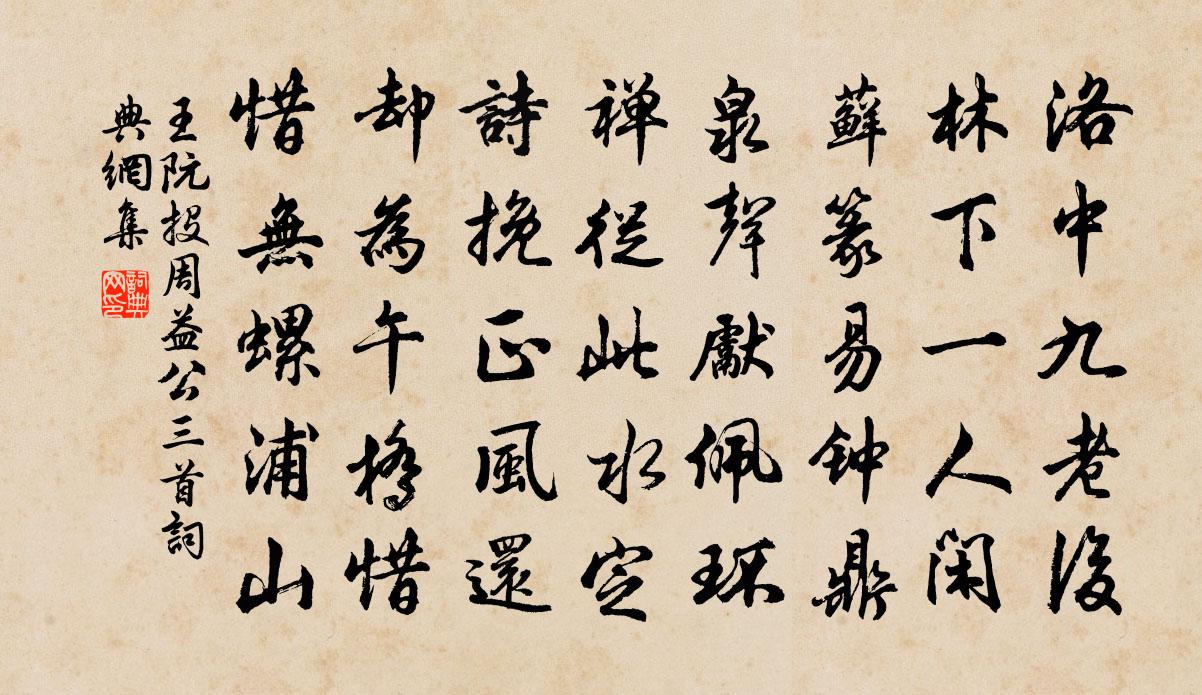 洛中九老後
林下一人闲
蘚篆易钟鼎
泉聲獻佩环
禅從此水定
詩挽正風還
却為午橋惜
惜無螺浦山
王阮投周益公三首詞
典網集
詞典
网印